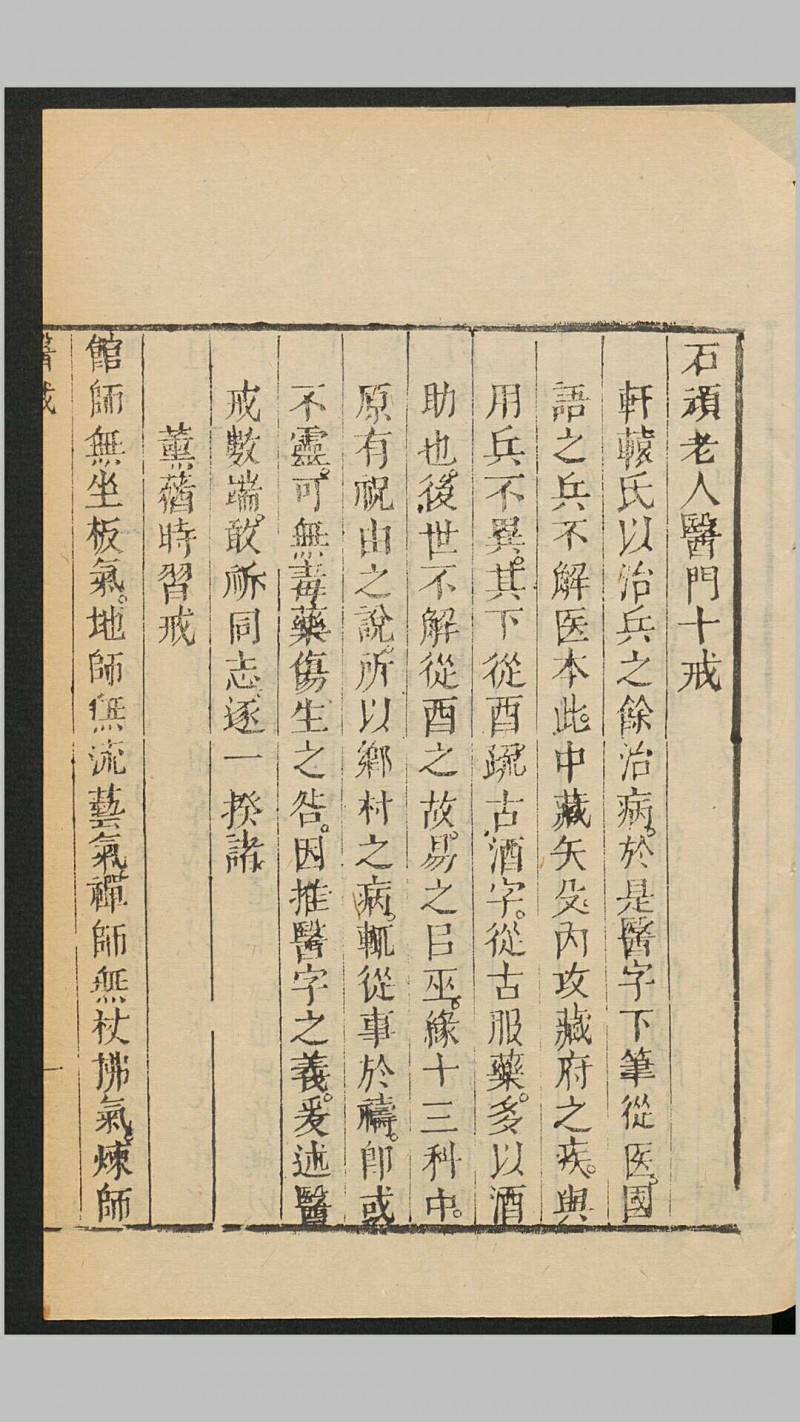 石頑老人醫門十戒
軒轅氏以治兵之餘治病。於是醫字下筆從医。國
語之兵不解医本此。中藏矢殳。內攻藏府之疾。與
用兵不異。其下從酉。疏古酒字。從古服藥。多以酒
助也。後世不解從酉之故。易之㠯巫。緣十三科中。
原有祝由之說。所以鄉村之病。輒從事於禱。即或
不靈。可無毒藥傷生之咎。因推醫字之義。爰述醫
戒數端。敢祈同志。逐一揆諸。
薰蕕時習戒
館師無坐板氣。地師無流藝氣。禪師無杖拂氣。煉師
醫戒
一